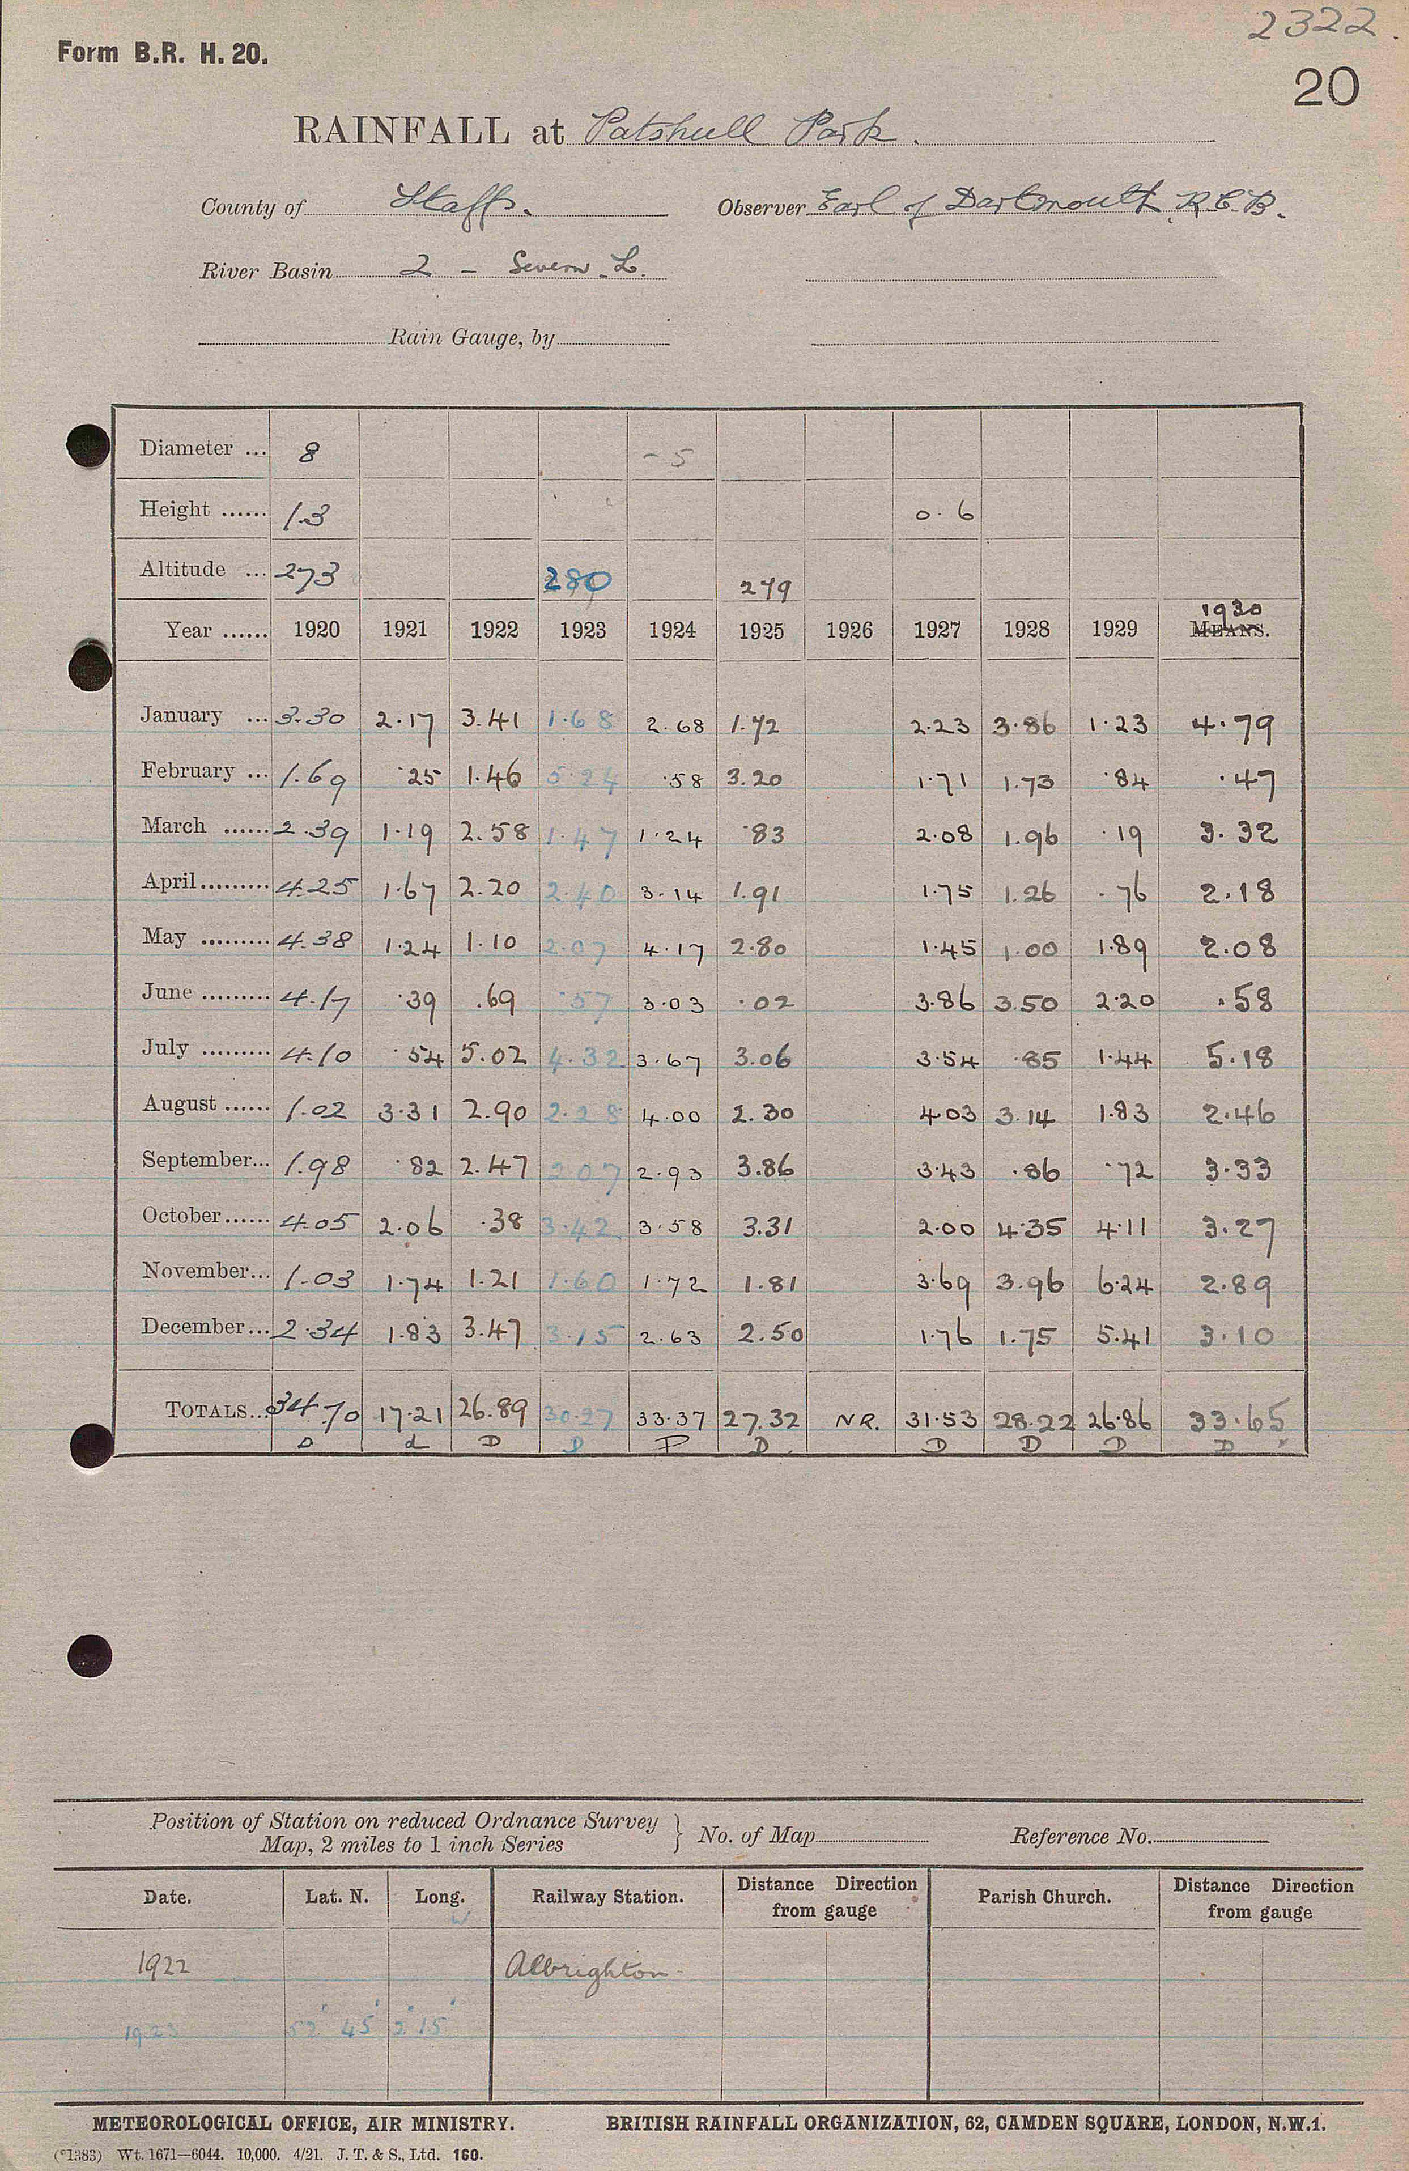 2322.
Form B.R. H. 20.
20
RAINFALL at Patshull Park.
County of Staffs. Observer Earl of Dartmouth, K.C.B.
River Basin 2 - Severn. L.
Rain Gauge, by
Diameter ... 8 - 5
Height ...... 1.3 0.6
Altitude ... 273 280 279
Year ...... 1920 1921 1922 1923 1924 1925 1926 1927 1928 1929 MEANS. 1930
January ... 3.30 2.17 3.41 1.68 2.68 1.72 2.23 3.86 1.23 4.79
February ... 1.69 .25 1.46 5.24 .58 3.20 1.71 1.73 .84 .47
March ...... 2.39 1.19 2.58 1.47 1.24 .83 2.08 1.96 .19 3.32
April ......... 4.25 1.67 2.20 2.40 3.14 1.91 1.75 1.26 .76 2.18
May ......... 4.38 1.24 1.10 2.07 4.17 2.80 1.45 1.00 1.89 2.08
June ......... 4.17 .39 .69 .57 3.03 .02 3.86 3.50 2.20 .58
July ......... 4.10 .54 5.02 4.32 3.67 3.06 3.54 .85 1.44 5.18
August ...... 1.02 3.31 2.90 2.28 4.00 2.30 4.03 3.14 1.83 2.46
September... 1.98 .82 2.47 2.07 2.93 3.86 3.43 .86 .72 3.33
October...... 4.05 2.06 .38 3.42 3.58 3.31 2.00 4.35 4.11 3.27
November... 1.03 1.74 1.21 1.60 1.72 1.81 3.69 3.96 6.24 2.89
December... 2.34 1.83 3.47 3.15 2.63 2.50 1.76 1.75 5.41 3.10
TOTALS... 34.70 17.21 26.89 30.27 33.37 27.32 N R. 31.53 28.22 26.86 33.65
D d D D P D D D D D
Position of Station on reduced Ordnance Survey
Map, 2 miles to 1 inch Series } No. of Map Reference No.
Date. Lat. N. Long. W Railway Station. Distance Direction from gauge Parish Church. Distance Direction from gauge
1922 Albrighton
1923 52° 45' 2° 15'
METEOROLOGICAL OFFICE, AIR MINISTRY. BRITISH RAINFALL ORGANIZATION, 62, CAMDEN SQUARE, LONDON, N.W.1.
(*1383) Wt. 1671—6044. 10,000. 4/21. J. T. & S., Ltd. 160.